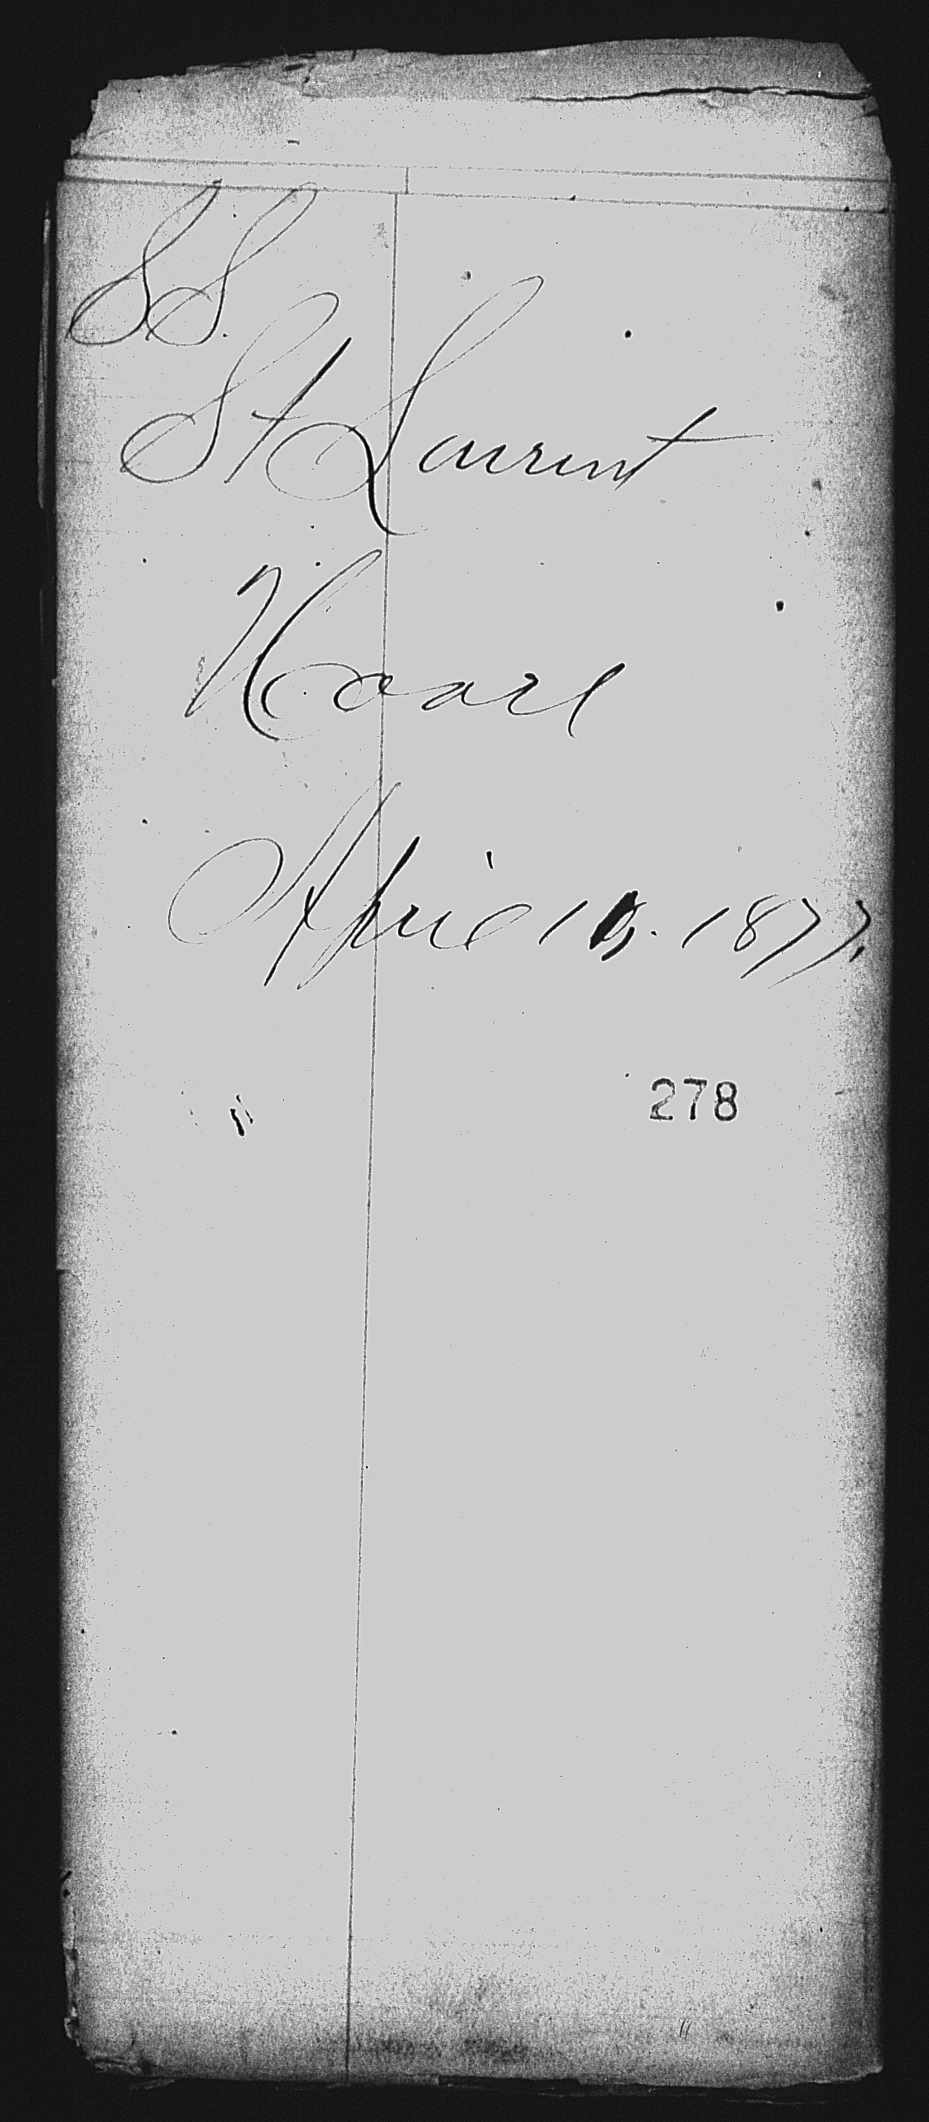 SS.
St Laurent
Havre
April 1877.
278